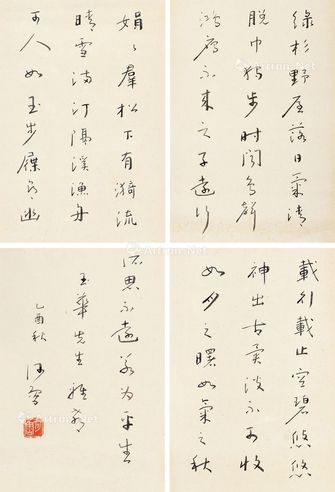 綠杉野屋落日氣清
脫巾獨步時聞鳥聲
鴻雁不來之子遠行
娟〻羣松下有漪流
晴雪滿汀隔溪漁舟
可人如玉步屧尋幽
載行載止空碧悠悠
神出古異淡不可收
如月之曙如氣之秋
所思不遠若為平生
玉華先生雅
乙酉秋